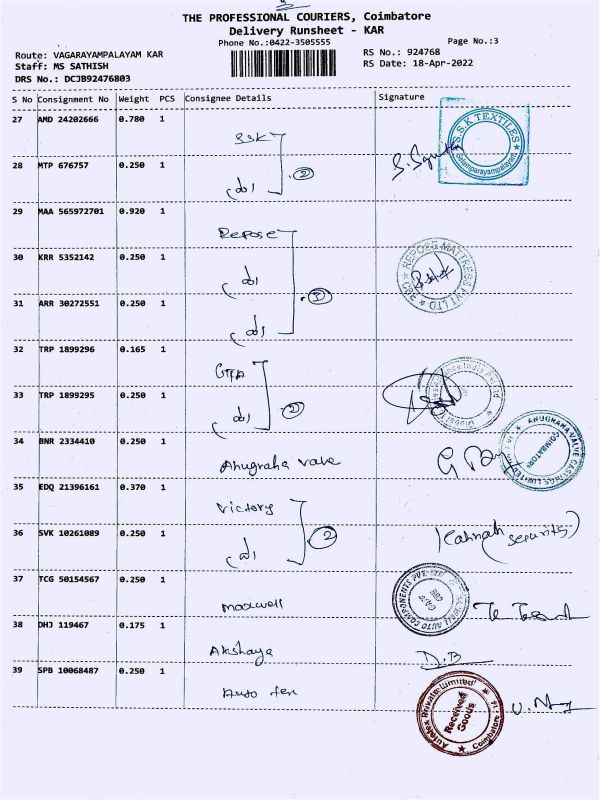 THE PROFESSIONAL COURIERS, Coimbatore
Delivery Runsheet - KAR
Phone No.:0422-3505555
Page No.:3
Route: VAGARAYAMPALAYAM KAR
RS No.: 924768
Staff: MS SATHISH
RS Date: 18-Apr-2022
DRS No.: DCJB92476803
S No Consignment No Weight PCS Consignee Details Signature
27 AMD 24202666 0.780 1 SSK
S.S.K TEXTILES
28 MTP 676757 0.250 1 2
29 MAA 565972701 0.920 1 Repose
REPOSE MATTRESS PVT LTD
30 KRR 5352142 0.250 1
31 ARR 30272551 0.250 1 3
32 TRP 1899296 0.165 1
33 TRP 1899295 0.250 1 2
34 BNR 2334410 0.250 1 Anugraha valve
ANUGRAHA VALVE CASTINGS LIMITED
COIMBATORE
35 EDQ 21396161 0.370 1 Victory
36 SVK 10261089 0.250 1 2
security)
37 TCG 50154567 0.250 1 maxwell
AUTO COMPONENTS PVT.
38 DHJ 119467 0.175 1 Akshaya
D.B
39 SPB 10068487 0.250 1
Private Limited
Received
Goods
Coimbatore